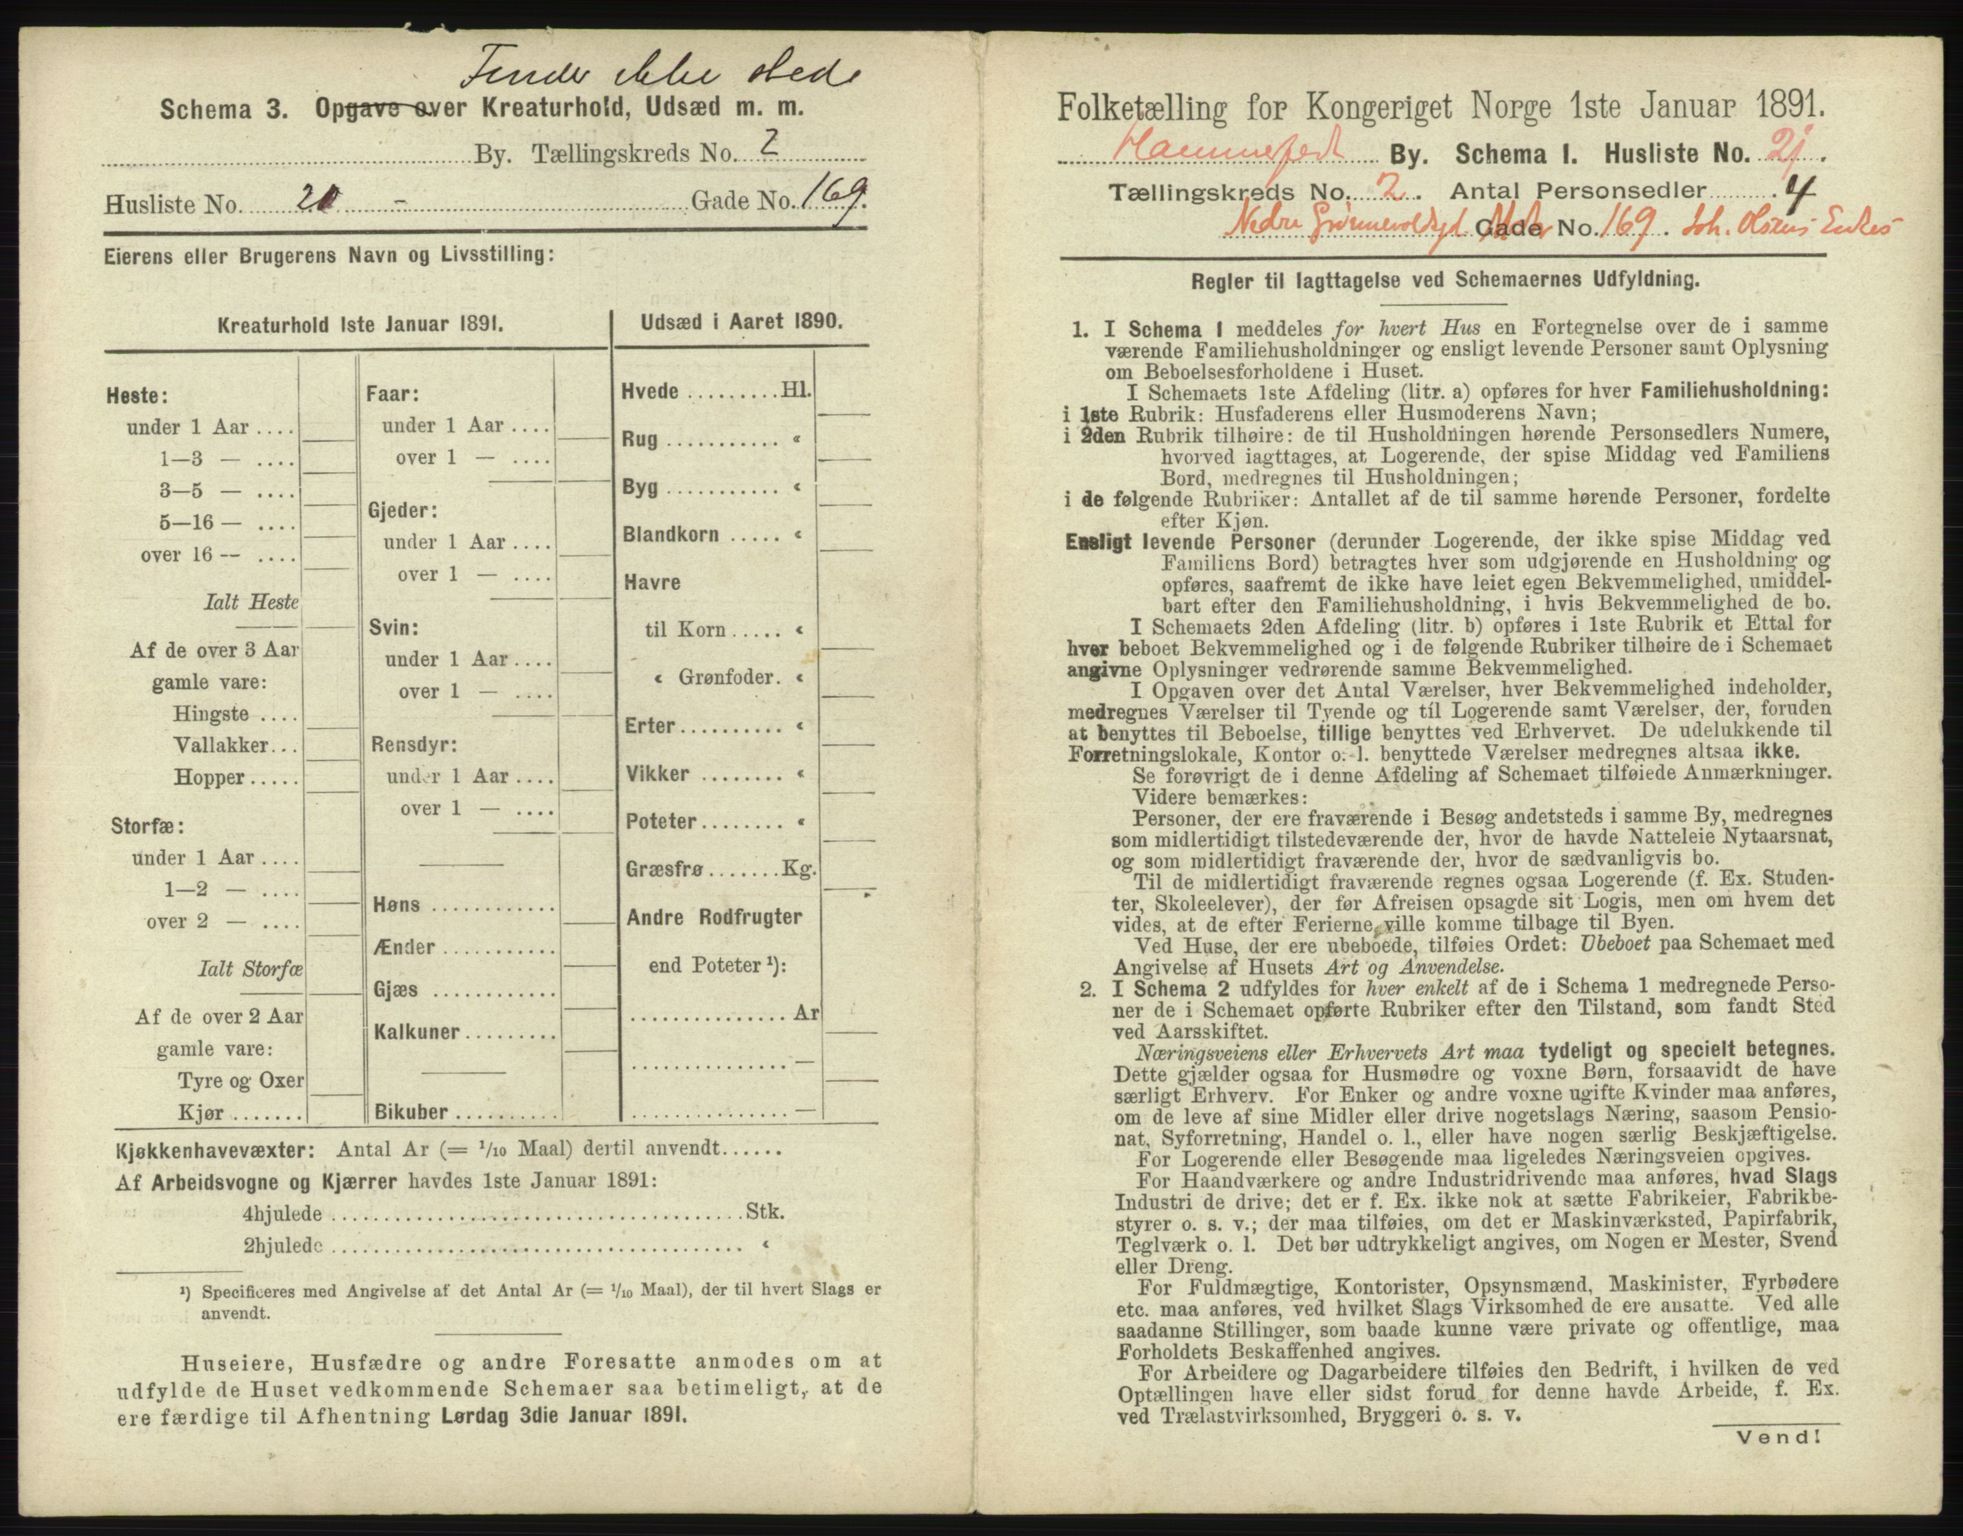 Finder ikke sted
Schema 3. Opgave over Kreaturhold, Udsæd m. m.
By. Tællingskreds No. 2
Husliste No. 21 - Gade No. 169.
Eierens eller Brugerens Navn og Livsstilling:
Kreaturhold 1ste Januar 1891.
Heste:
under 1 Aar ....
1—3 — ....
3—5 — ....
5—16 — ....
over 16 — ....
Ialt Heste
Af de over 3 Aar
gamle vare:
Hingste ....
Vallakker...
Hopper.....
Storfæ:
under 1 Aar ....
1—2 — ....
over 2 — ....
Ialt Storfæ
Af de over 2 Aar
gamle vare:
Tyre og Oxer
Kjør .......
Faar:
under 1 Aar ....
over 1 — ....
Gjeder:
under 1 Aar ....
over 1 — ....
Svin:
under 1 Aar ....
over 1 — ....
Rensdyr:
under 1 Aar ....
over 1 — ....
Høns ............
Ænder ...........
Gjæs ............
Kalkuner.........
Bikuber..........
Udsæd i Aaret 1890.
Hvede .........Hl.
Rug ........... «
Byg ........... «
Blandkorn ..... «
Havre
til Korn ..... «
« Grønfoder. «
Erter .......... «
Vikker ........ «
Poteter........ «
Græsfrø .......Kg.
Andre Rodfrugter
end Poteter ¹):
............... Ar
............... —
............... —
Kjøkkenhavevæxter: Antal Ar (= 1/10 Maal) dertil anvendt......
Af Arbeidsvogne og Kjærrer havdes 1ste Januar 1891:
4hjulede ........................................Stk.
2hjulede ........................................ «
¹) Specificeres med Angivelse af det Antal Ar (= 1/10 Maal), der til hvert Slags er
anvendt.
Huseiere, Husfædre og andre Foresatte anmodes om at
udfylde de Huset vedkommende Schemaer saa betimeligt, at de
ere færdige til Afhentning Lørdag 3die Januar 1891.
Folketælling for Kongeriget Norge 1ste Januar 1891.
Hammerfest By. Schema 1. Husliste No. 21.
Tællingskreds No. 2. Antal Personsedler 4
Nedre Grønnevoldsgd Gade No. 169. Joh. Olsens Enkes
Regler til Iagttagelse ved Schemaernes Udfyldning.
1. I Schema 1 meddeles for hvert Hus en Fortegnelse over de i samme
værende Familiehusholdninger og ensligt levende Personer samt Oplysning
om Beboelsesforholdene i Huset.
I Schemaets 1ste Afdeling (litr. a) opføres for hver Familiehusholdning:
i 1ste Rubrik: Husfaderens eller Husmoderens Navn;
i 2den Rubrik tilhøire: de til Husholdningen hørende Personsedlers Numere,
hvorved iagttages, at Logerende, der spise Middag ved Familiens
Bord, medregnes til Husholdningen;
i de følgende Rubriker: Antallet af de til samme hørende Personer, fordelte
efter Kjøn.
Ensligt levende Personer (derunder Logerende, der ikke spise Middag ved
Familiens Bord) betragtes hver som udgjørende en Husholdning og
opføres, saafremt de ikke have leiet egen Bekvemmelighed, umiddel-
bart efter den Familiehusholdning, i hvis Bekvemmelighed de bo.
I Schemaets 2den Afdeling (litr. b) opføres i 1ste Rubrik et Ettal for
hver beboet Bekvemmelighed og i de følgende Rubriker tilhøire de i Schemaet
angivne Oplysninger vedrørende samme Bekvemmelighed.
I Opgaven over det Antal Værelser, hver Bekvemmelighed indeholder,
medregnes Værelser til Tyende og til Logerende samt Værelser, der, foruden
at benyttes til Beboelse, tillige benyttes ved Erhvervet. De udelukkende til
Forretningslokale, Kontor o. l. benyttede Værelser medregnes altsaa ikke.
Se forøvrigt de i denne Afdeling af Schemaet tilføiede Anmærkninger.
Videre bemærkes:
Personer, der ere fraværende i Besøg andetsteds i samme By, medregnes
som midlertidigt tilstedeværende der, hvor de havde Natteleie Nytaarsnat,
og som midlertidigt fraværende der, hvor de sædvanligvis bo.
Til de midlertidigt fraværende regnes ogsaa Logerende (f. Ex. Studen-
ter, Skoleelever), der før Afreisen opsagde sit Logis, men om hvem det
vides, at de efter Ferierne ville komme tilbage til Byen.
Ved Huse, der ere ubeboede, tilføies Ordet: Ubeboet paa Schemaet med
Angivelse af Husets Art og Anvendelse.
2. I Schema 2 udfyldes for hver enkelt af de i Schema 1 medregnede Perso-
ner de i Schemaet opførte Rubriker efter den Tilstand, som fandt Sted
ved Aarsskiftet.
Næringsveiens eller Erhvervets Art maa tydeligt og specielt betegnes.
Dette gjælder ogsaa for Husmødre og voxne Børn, forsaavidt de have
særligt Erhverv. For Enker og andre voxne ugifte Kvinder maa anføres,
om de leve af sine Midler eller drive nogetslags Næring, saasom Pensio-
nat, Syforretning, Handel o. l., eller have nogen særlig Beskjæftigelse.
For Logerende eller Besøgende maa ligeledes Næringsveien opgives.
For Haandværkere og andre Industridrivende maa anføres, hvad Slags
Industri de drive; det er f. Ex. ikke nok at sætte Fabrikeier, Fabrikbe-
styrer o. s. v.; der maa tilføies, om det er Maskinværksted, Papirfabrik,
Teglværk o. l. Det bør udtrykkeligt angives, om Nogen er Mester, Svend
eller Dreng.
For Fuldmægtige, Kontorister, Opsynsmænd, Maskinister, Fyrbødere
etc. maa anføres, ved hvilket Slags Virksomhed de ere ansatte. Ved alle
saadanne Stillinger, som baade kunne være private og offentlige, maa
Forholdets Beskaffenhed angives.
For Arbeidere og Dagarbeidere tilføies den Bedrift, i hvilken de ved
Optællingen have eller sidst forud for denne havde Arbeide, f. Ex.
ved Trælastvirksomhed, Bryggeri o. s. v.
Vend!